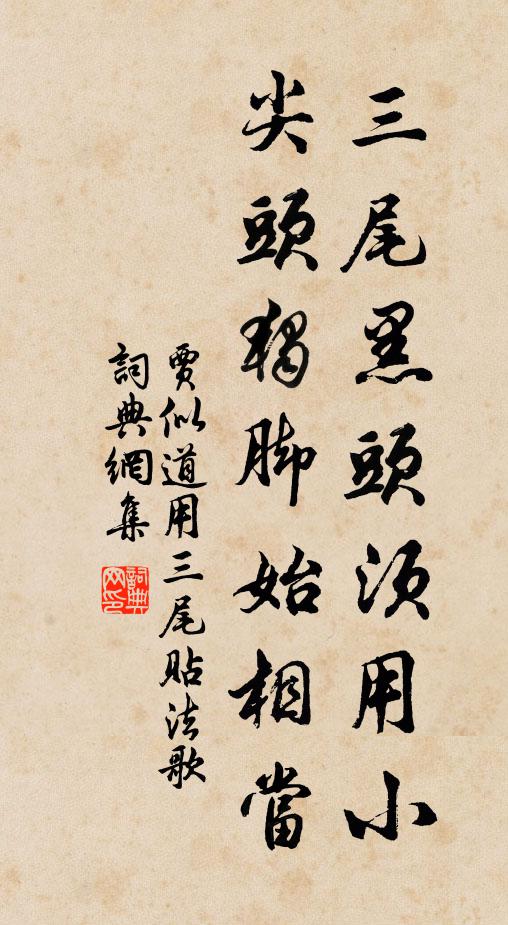 三尾黑頭須用小
尖頭獨脚始相當
賈似道用三尾貼法歌
詞典網集
詞典網印